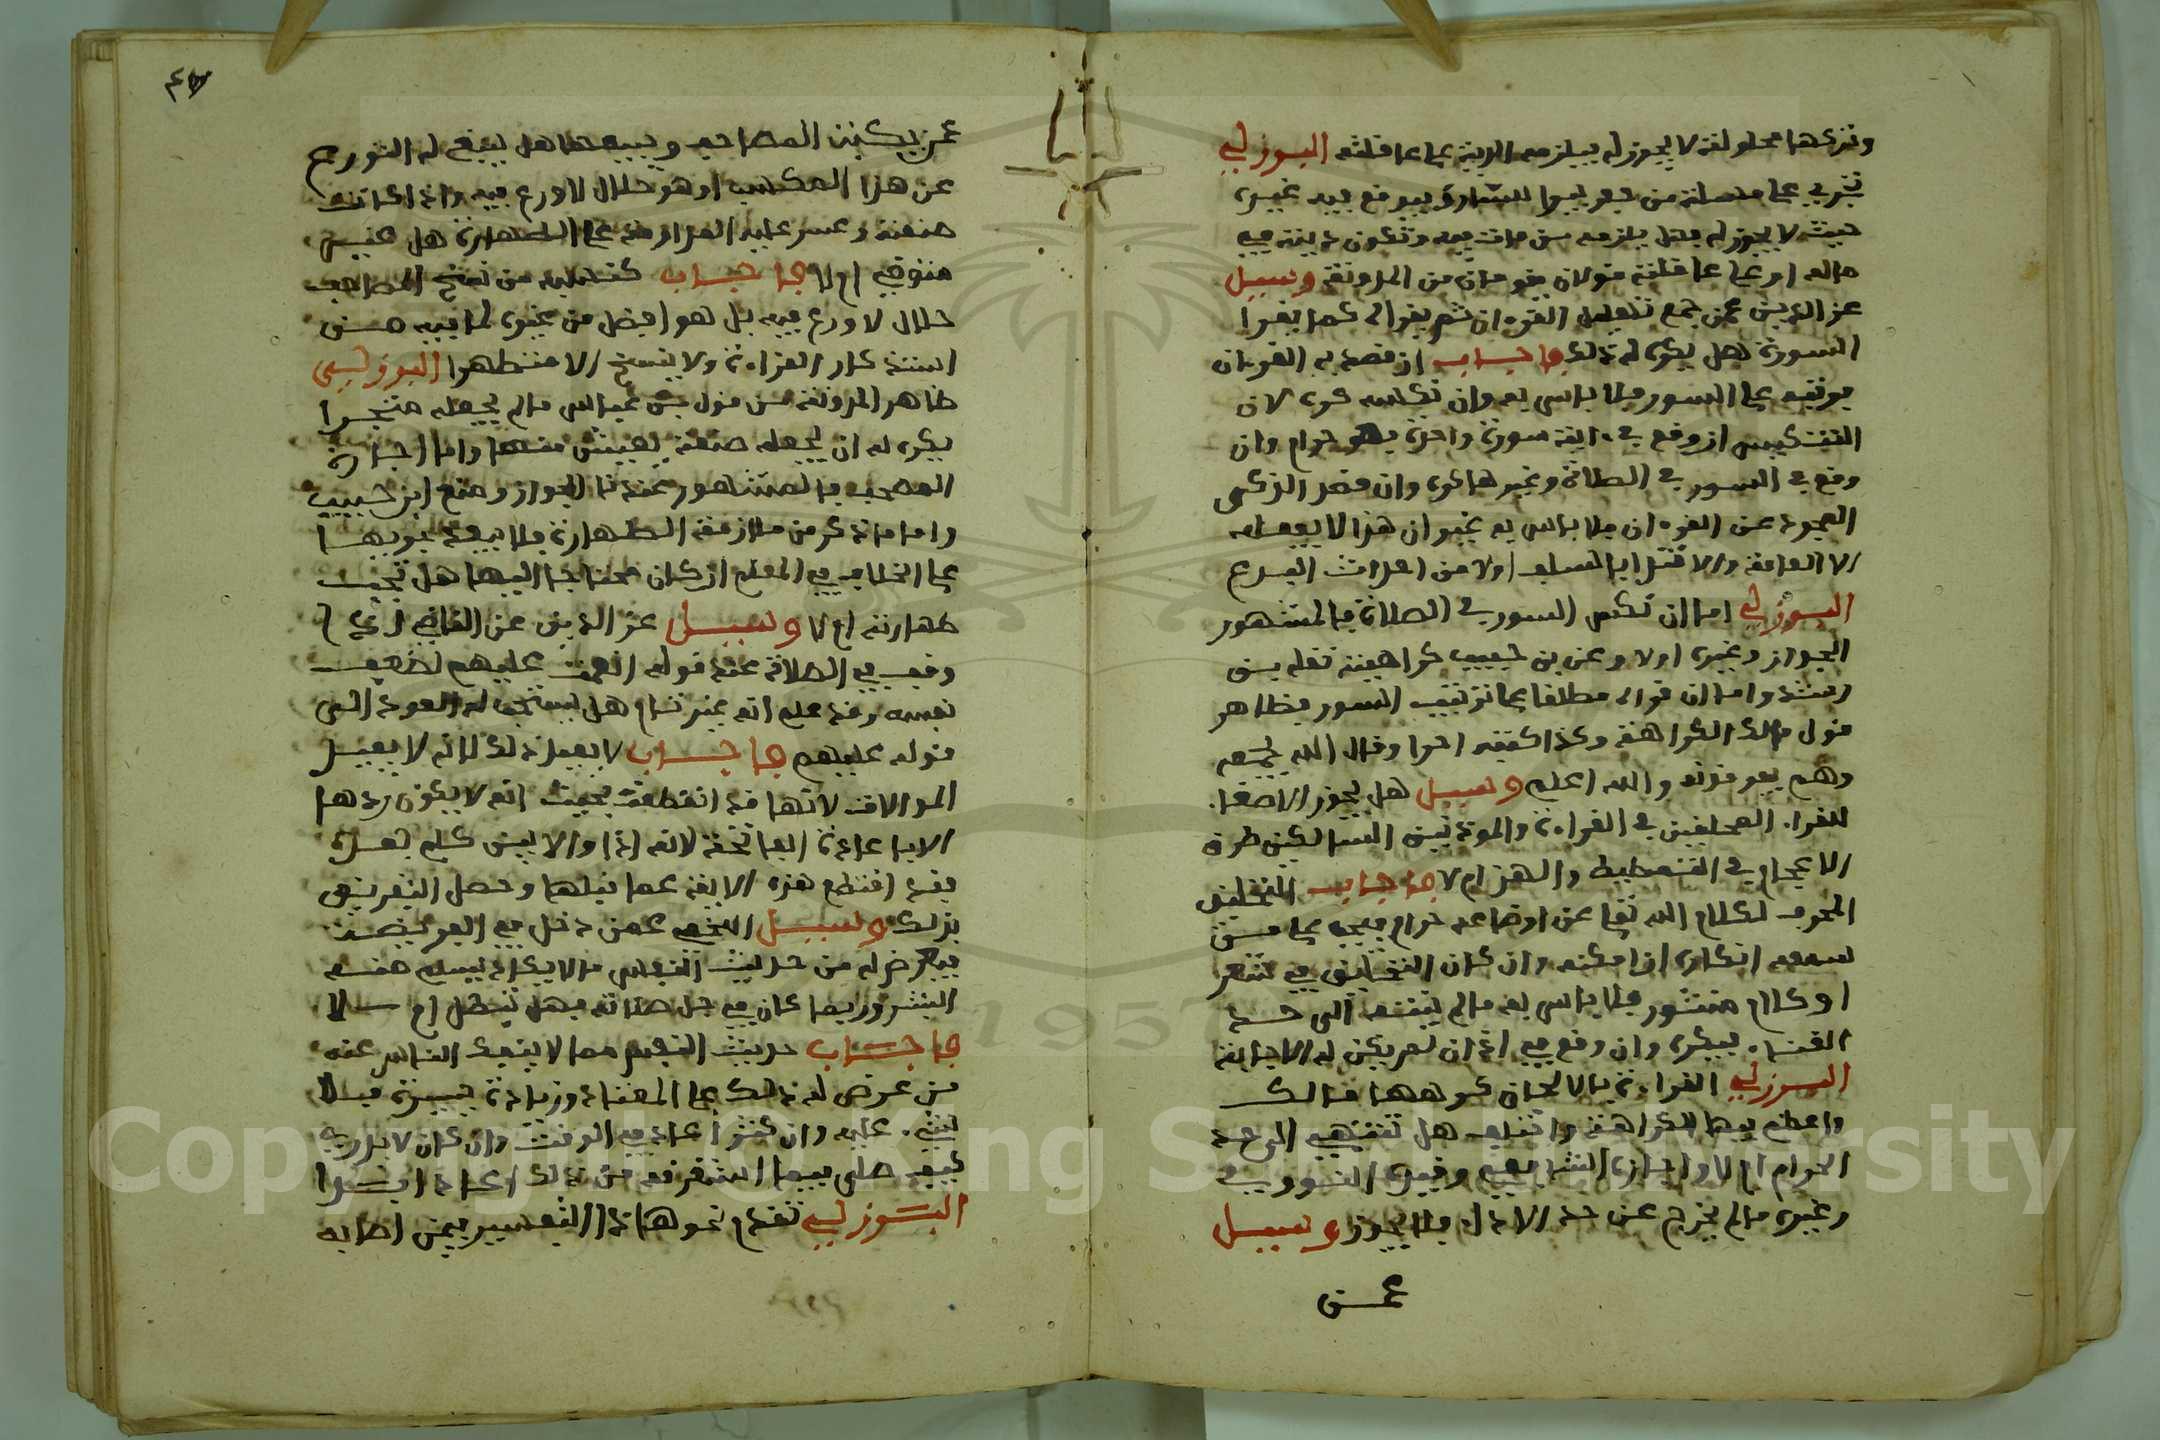 وتركها محلولة لا يجوز له فيلزمه الدية على عاقلته البرزلي
تجري على مسئلة من حفر بيرا للسارق فيوقع فيه غيره
حيث لا يجوز له فهل يلزمه من مات فيه وتكون دية فيه
ماله او على عاقلته قولان يقومان من المدونة وسيل
عز الدين عمن جمع تنكيس القرءان ثم يقراه كما يقرا
السورة هل يكره له ذلك فاجاب ان قصد به القرءان
يوقفه على السور فلا باس به وان نكسه كره لان
التنكيس ان وقع في ءاية سورة واحدة فهو حرام وان
وقع في السور في الصلاة وغيرها كره وان قصد الذكر
المجرد عن القرءان فلا باس به غير ان هذا لا يفعله
الا العامة والاقتدا بالسلف اولى من احداث البدع
البرزلي اما ان نكس السور في الصلاة فالمشهور
الجواز وغيره اولا وعن بن حبيب كراهيته نقله بن
رشد واما ان قراه مطلقا على ترتيب السور فظاهر
قول مالك الكراهة وكذا كتبه احرا وقال الله يجمعه
وهم يعرفونه والله اعلم وسيل هل يجوز الاصغا
للقرا المحلفين في القراءة والموذنين السالكين طرق
الاعجام في التمطيط والهزام لا فاجاب التخليق
المحرف لكلام الله تعلى عن اوضاعه حرام فيجب على من
سمعه انكاره ان امكنه وان كان التخليق في شعر
او كلام منثور فلا باس به مالم ينته الى حد
الغناء فيكره وان وقع في اذان لم يكن له الاجابة
البرزلي القراءة بالالحان كرهها مالك
واعظم فيها الكراهة واختلف هل تنتهي الى حد
الحرام ام لا واجازه الشافعي وقيده النووي
وغيره مالم يخرج عن حد الاداء فلا يجوز وسيل
عمن
٤٧
عمن يكتب المصاحف ويبيعها هل ينبغي له التورع
عن هذا المكسب او هو حلال لا ورع فيه واذا كانت
صنعته وعسر عليه المداومة على الطهارة هل يمس
متوضي ام لا فاجاب كسبه من نسخ المصاحف
حلال لا ورع فيه بل هو افضل من غيره لما فيه من
استذكار القراءة ولا ينسخ الا متطهرا البرزلي
ظاهر المدونة من قول بن عباس مالم يجعله متجرا
يكره له ان يجعله صنعة يعيش منها واما اجارة
المصحف فالمشهور عندنا الجواز ومنع ابن حبيب
واما ما ذكر من ملازمة الطهارة فلا يبعد جريها
على الخلاف في المعلم ان كان محتاجا اليها هل تجب
طهارته ام لا وسيل عز الدين عن القاري اذا
وقف في الصلاة عند قوله انعمت عليهم لضعف
نفسه وقد علم انه غير تام هل يستحب له العود الى
قوله عليهم فاجاب لا يفعل ذلك لانه لا يفعل
الموالات لانها قد انقطعت بحيث انه لا يكون ردها
الا باعادة الفاتحة لانه اذا والا بين كلم بعده
فقد اقتطع هذه الاية عما قبلها وحصل التفريق
بذلك وسيل اللخمي عمن دخل في الفريضة
فيعرض له من حديث النفس مالا يكاد يسلم منه
البشر وربما كان في جل صلاته فهل تبطل ام لا
فاجاب حديث النفس مما لا ينفك الناس عنه
من عرض له ذلك على المعتاد وزيادة يسيرة فلا
شيء عليه وان كثر اعاد في الوقت وان كان لا يدري
كيف صلى فيما استغرقه من ذلك اعاد ابدا
البرزلي تقدم نحو هذا التفسير فيمن اصابه